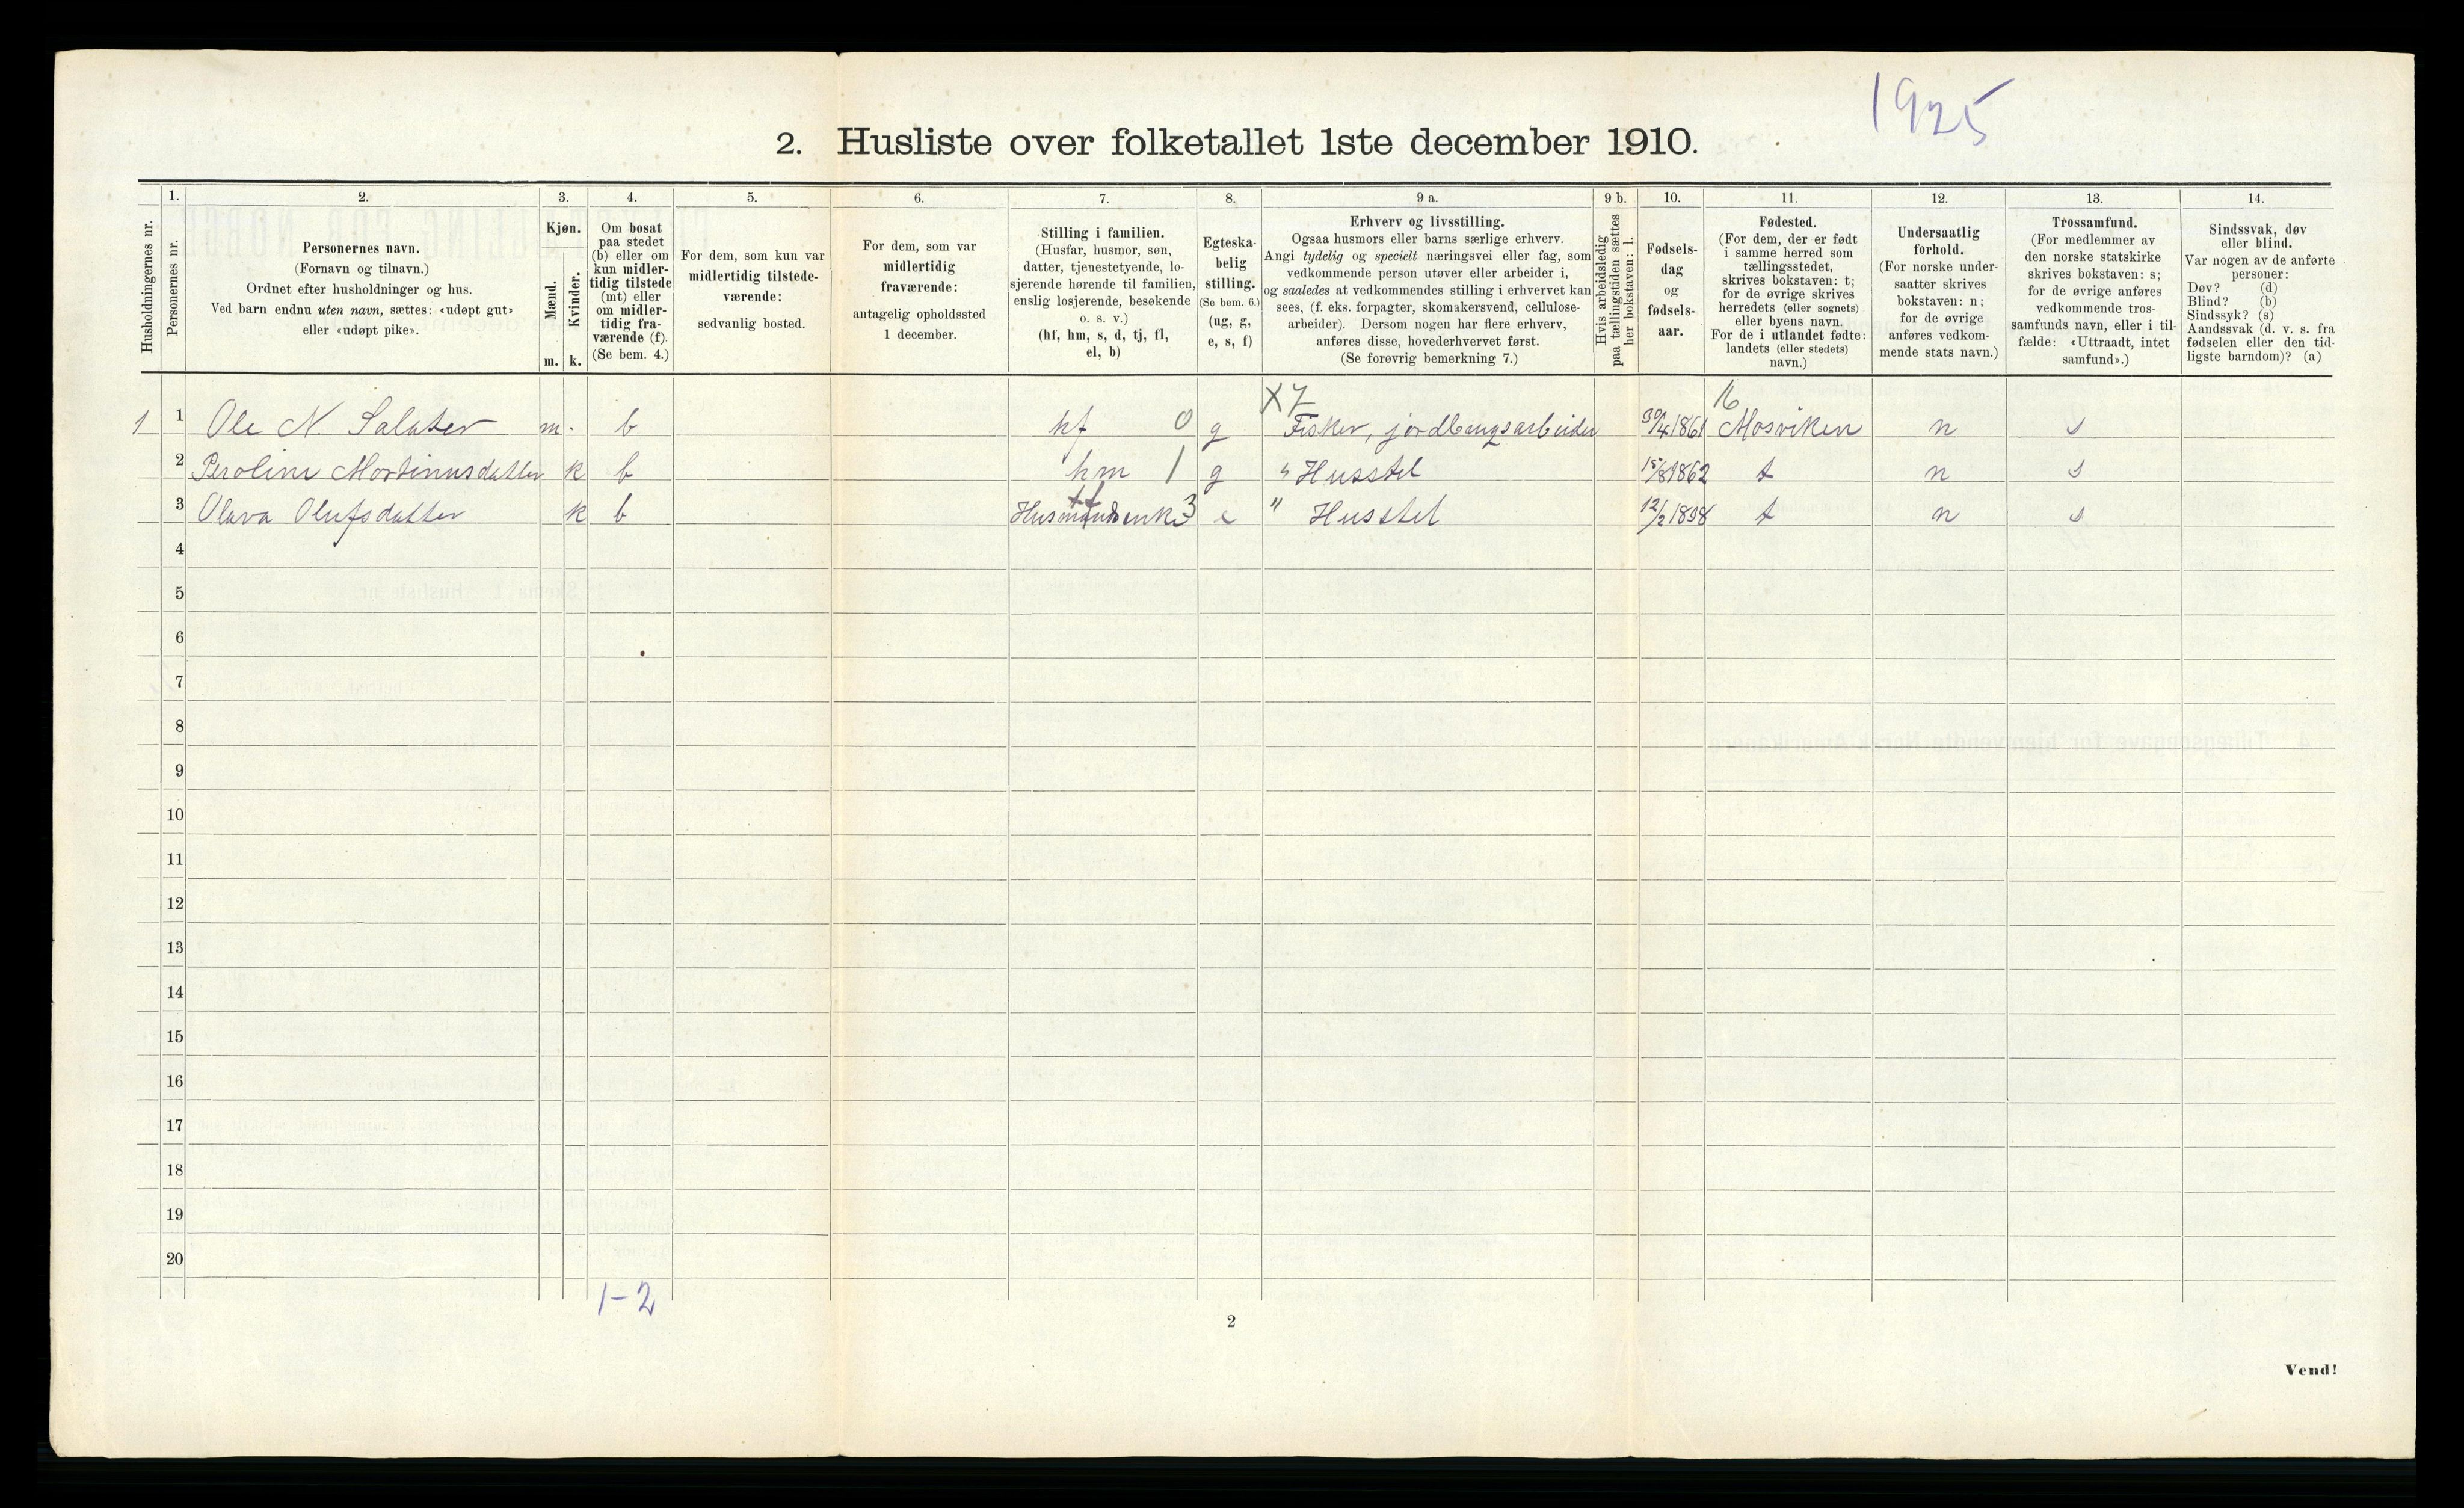 1925
2. Husliste over folketallet 1ste december 1910.
Husholdningernes nr.
1.
Personernes nr.
2.
Personernes navn.
(Fornavn og tilnavn.)
Ordnet efter husholdninger og hus.
Ved barn endnu uten navn, sættes: «udøpt gut»
eller «udøpt pike».
3.
Kjøn.
Mænd.
Kvinder.
m. k.
4.
Om bosat
paa stedet
(b) eller om
kun midler-
tidig tilstede
(mt) eller
om midler-
tidig fra-
værende (f).
(Se bem. 4.)
5.
For dem, som kun var
midlertidig tilstede-
værende:
sedvanlig bosted.
6.
For dem, som var
midlertidig
fraværende:
antagelig opholdssted
1 december.
7.
Stilling i familien.
(Husfar, husmor, søn,
datter, tjenestetyende, lo-
sjerende hørende til familien,
enslig losjerende, besøkende
o. s. v.)
(hf, hm, s, d, tj, fl,
el, b)
8.
Egteska-
belig
stilling.
(Se bem. 6.)
(ug, g,
e, s, f)
9 a.
Erhverv og livsstilling.
Ogsaa husmors eller barns særlige erhverv.
Angi tydelig og specielt næringsvei eller fag, som
vedkommende person utøver eller arbeider i,
og saaledes at vedkommendes stilling i erhvervet kan
sees, (f. eks. forpagter, skomakersvend, cellulose-
arbeider). Dersom nogen har flere erhverv,
anføres disse, hovederhvervet først.
(Se forøvrig bemerkning 7.)
9 b.
Hvis arbeidsledig
paa tællingstiden sættes
her bokstaven: l.
10.
Fødsels-
dag
og
fødsels-
aar.
11.
Fødested.
(For dem, der er født
i samme herred som
tællingsstedet,
skrives bokstaven: t;
for de øvrige skrives
herredets (eller sognets)
eller byens navn.
For de i utlandet fødte:
landets (eller stedets)
navn.)
12.
Undersaatlig
forhold.
(For norske under-
saatter skrives
bokstaven: n;
for de øvrige
anføres vedkom-
mende stats navn.)
13.
Trossamfund.
(For medlemmer av
den norske statskirke
skrives bokstaven: s;
for de øvrige anføres
vedkommende tros-
samfunds navn, eller i til-
fælde: «Uttraadt, intet
samfund».)
14.
Sindssvak, døv
eller blind.
Var nogen av de anførte
personer:
Døv? (d)
Blind? (b)
Sindssyk? (s)
Aandssvak (d. v. s. fra
fødselen eller den tid-
ligste barndom)? (a)
X7 16
1 1 Ole N. Salater m. b hf 0 g Fisker, jordbrugsarbeider 30/4 1861 Mosviken n s
2 Peroline Mortinusdatter k b hm 1 g " Husstel 15/8 1862 t n s
3 Olava Olufsdatter k b 3 e " Husstel 12/2 t n s
4
5
6
7
8
9
10
11
12
13
14
15
16
17
18
19
20
1-2
2
Vend!